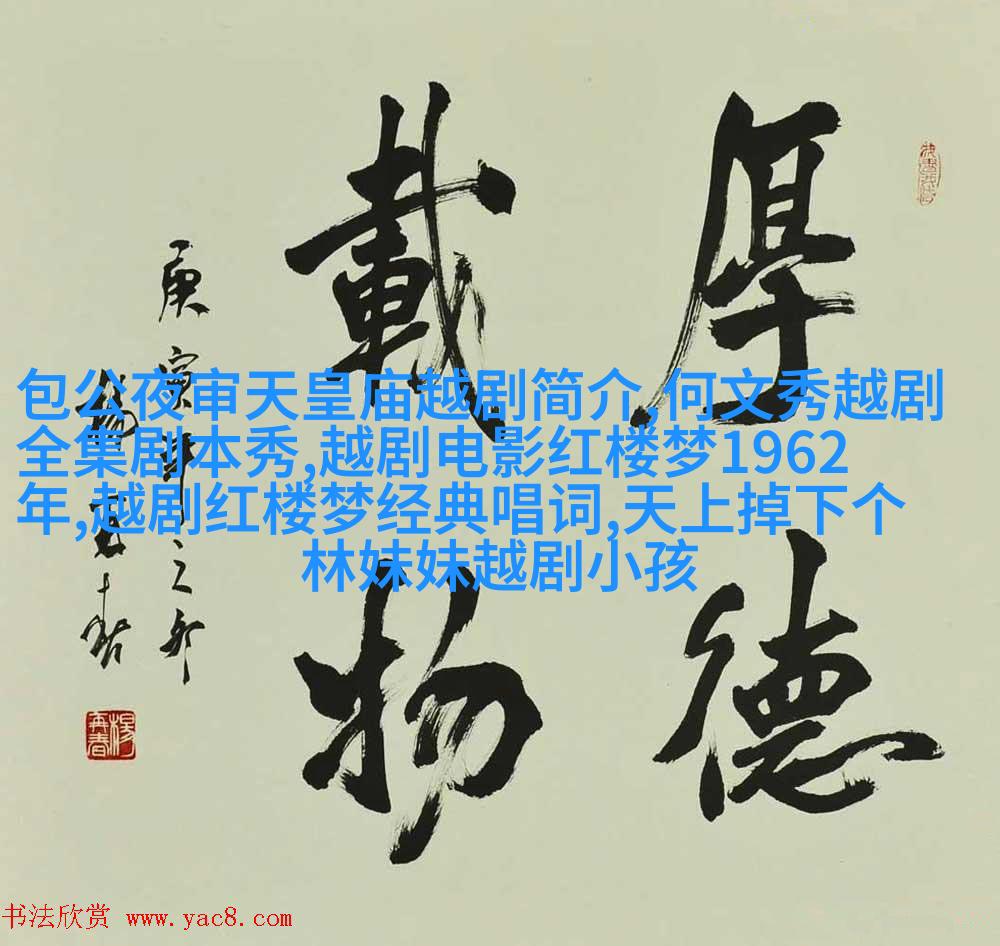 厚德
載物
庚寅年之卯
楊再春
楊再春
包公夜审天皇庙越剧简介,何文秀越剧
全集剧本秀,越剧电影红楼梦1962
年,越剧红楼梦经典唱词,天上掉下个
林妹妹越剧小孩
书法欣赏 www.yac8.com